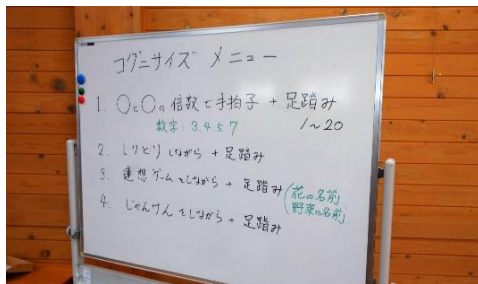 コグニサイズ メニュー
1. ○と○の倍数で手拍子 + 足踏み
数字:3.4.5.7 1~20
2. しりとりしながら + 足踏み
3. 連想ゲームをしながら + 足踏み(花の名前
野菜の名前
4. じゃんけんをしながら + 足踏み